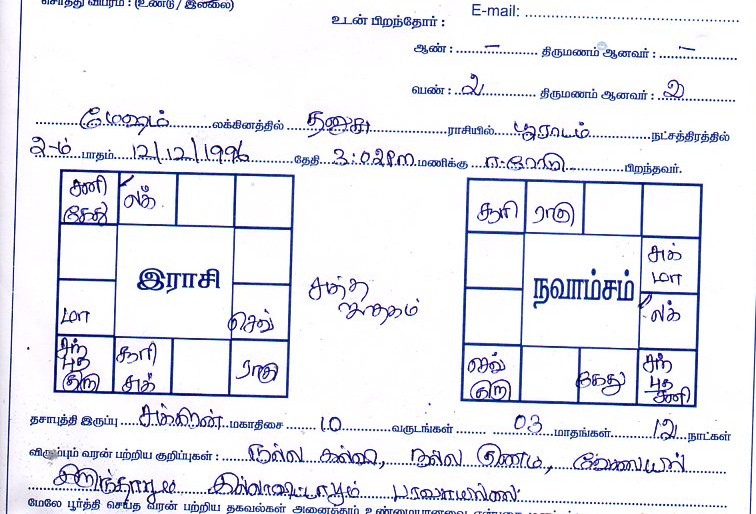 சொத்து விபரம் : (உண்டு / இல்லை)
E-mail:
உடன் பிறந்தோர் :
ஆண் : – திருமணம் ஆனவர் : –
பெண் : 2 திருமணம் ஆனவர் : 2
மேஷம் லக்கினத்தில் தனுசு ராசியில் பூராடம் நட்சத்திரத்தில்
2-ம் பாதம் 12/12/1996 தேதி 3:02 PM மணிக்கு பிறந்தவர்.
சனி கேது
லக்
இராசி
மா
செவ்
சந் புத குரு
சூரி சுக்
ராகு
சுத்த ஜாதகம்
சூரி
ராகு
நவாம்சம்
சுக் மா
லக்
செவ் குரு
கேது
சந் புத சனி
தசாபுத்தி இருப்பு சுக்கிரன் மகாதிசை 10 வருடங்கள் 03 மாதங்கள் 12 நாட்கள்
விரும்பும் வரன் பற்றிய குறிப்புகள் : நல்ல கல்வி, நல்ல குணம், வேலையில்
இருந்தாலும் இல்லாவிட்டாலும் பரவாயில்லை.
மேலே பூர்த்தி செய்த வரன் பற்றிய தகவல்கள் அனைத்தும் உண்மையானவை